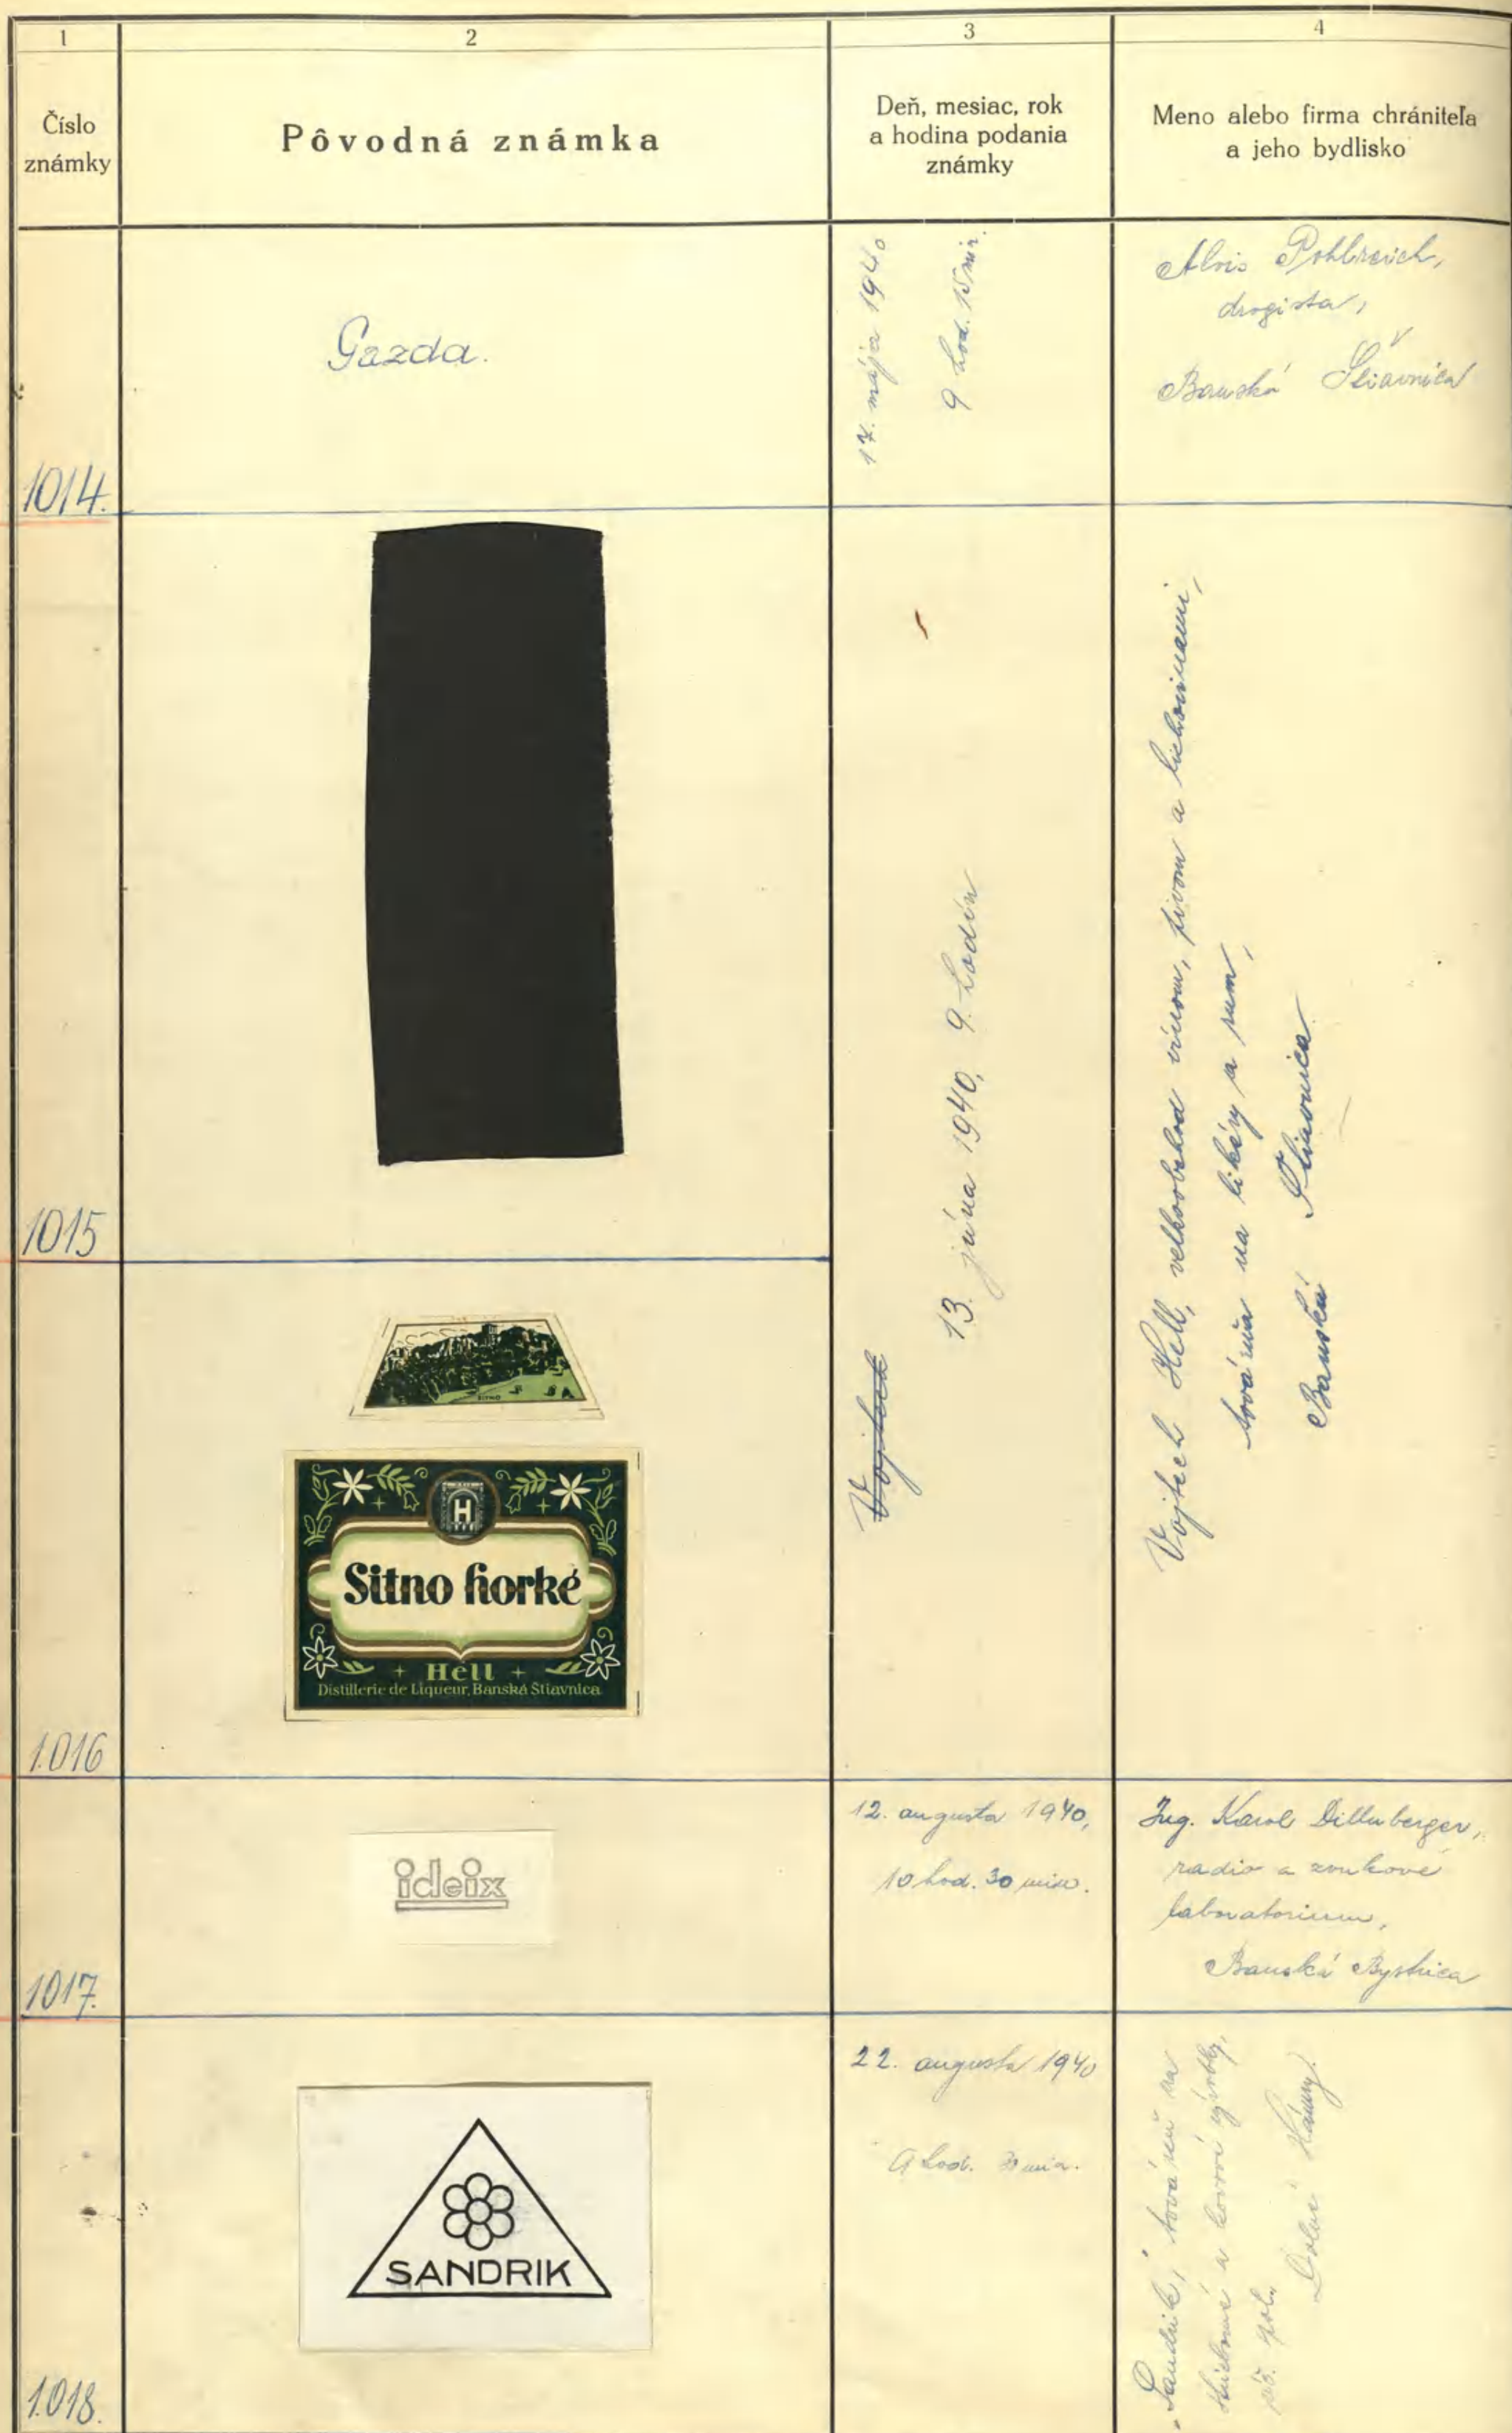 1
2
3
4
Číslo
známky
Pôvodná známka
Deň, mesiac, rok
a hodina podania
známky
Meno alebo firma chrániteľa
a jeho bydlisko
1014.
Gazda.
17. mája 1940
9 hod. 15 min.
Alois Pohlreich,
drogista,
Banská Štiavnica
1015
13. júna 1940, 9. hodín
Vojtech Hell, velkoobchod vínom, pivom a liehovinami,
továrňa na likéry a rum,
Banská Štiavnica
1016
SITNO
H
Sitno horké
Hell
Distillerie de Liqueur, Banská Štiavnica
Vojtech
1017.
ideix
12. augusta 1940,
10 hod. 30 min.
Ing. Karol Dillnberger,
radio a zvukové
laboratorium,
Banská Bystrica
1018.
SANDRIK
22. augusta 1940
9 hod. 30 min.
„Sandrik, továreň na
strieborné a kovové výrobky,
Dolné Hámry